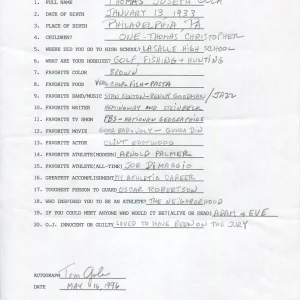 1. FULL NAME THOMAS JOSEPH GOLA
2. DATE OF BIRTH JANUARY 13, 1933
3. PLACE OF BIRTH PHILADELPHIA PA.
4. CHILDREN? ONE - THOMAS CHRISTOPHER
5. WHERE DID YOU GO TO HIGH SCHOOL? LASALLE HIGH SCHOOL
6. WHAT ARE YOUR HOBBIES? GOLF FISHING & HUNTING
7. FAVORITE COLOR BROWN
8. FAVORITE FOOD FISH - PASTA
9. FAVORITE BAND/MUSIC STAN KENTON - BENNY GOODMAN / JAZZ
10. FAVORITE WRITER HEMINGWAY AND STEINBECK
11. FAVORITE TV SHOW PBS - NATIONAL GEOGRAPHICS
12. FAVORITE MOVIE GOOD BAD & UGLY - GUNGA DIN
13. FAVORITE ACTOR CLINT EASTWOOD
14. FAVORITE ATHLETE(MODERN) ARNOLD PALMER
15. FAVORITE ATHLETE(ALL-TIME) JOE DiMAGGIO
16. GREATEST ACCOMPLISHMENT MY ATHLETIC CAREER
17. TOUGHEST PERSON TO GUARD OSCAR ROBERTSON
18. WHO INSPIRED YOU TO BE AN ATHLETE? THE NEIGHBORHOOD
19. IF YOU COULD MEET ANYONE WHO WOULD IT BE(ALIVE OR DEAD) ADAM & EVE
20. O.J. INNOCENT OR GUILTY LOVED TO HAVE BEEN ON THE JURY
AUTOGRAPH Tom Gola
DATE MAY 16, 1996